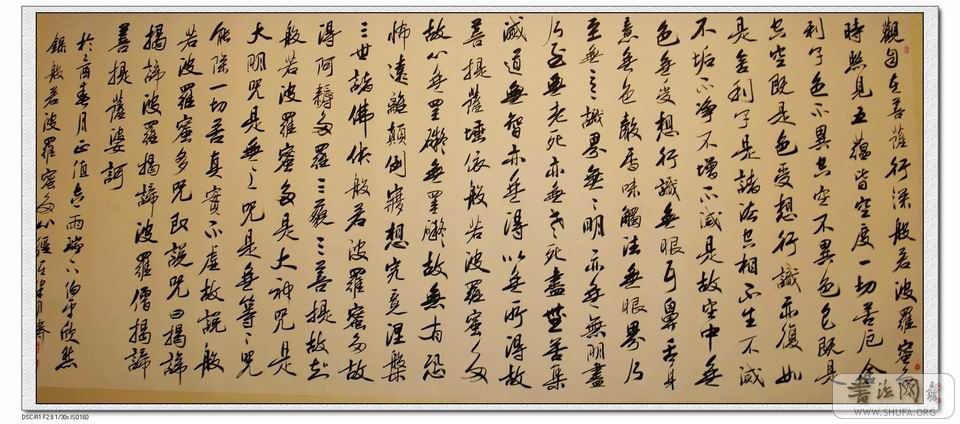 觀自在菩薩行深般若波羅蜜多
時照見五蘊皆空度一切苦厄舍
利子色不異空空不異色色既是
空空既是色受想行識亦復如
是舍利子是諸法空相不生不滅
不垢不淨不增不減是故空中無
色無受想行識無眼耳鼻舌身
意無色聲香味觸法無眼界乃
至無意識界無無明亦無無明盡
乃至無老死亦無老死盡無苦集
滅道無智亦無得以無所得故
菩提薩埵依般若波羅蜜多
故心無罣礙無罣礙故無有恐
怖遠離顛倒夢想究竟涅槃
三世諸佛依般若波羅蜜多故
得阿耨多羅三藐三菩提故知
般若波羅蜜多是大神咒是
大明咒是無上咒是無等等咒
能除一切苦真實不虛故說般
若波羅蜜多咒即說咒曰揭諦
揭諦波羅揭諦波羅僧揭諦
菩提薩婆訶
於乙酉春月正值
錄般若波羅蜜多心經
書法网
WWW.SHUFA.ORG
DSC-R1 F2.8 1/30s ISO160